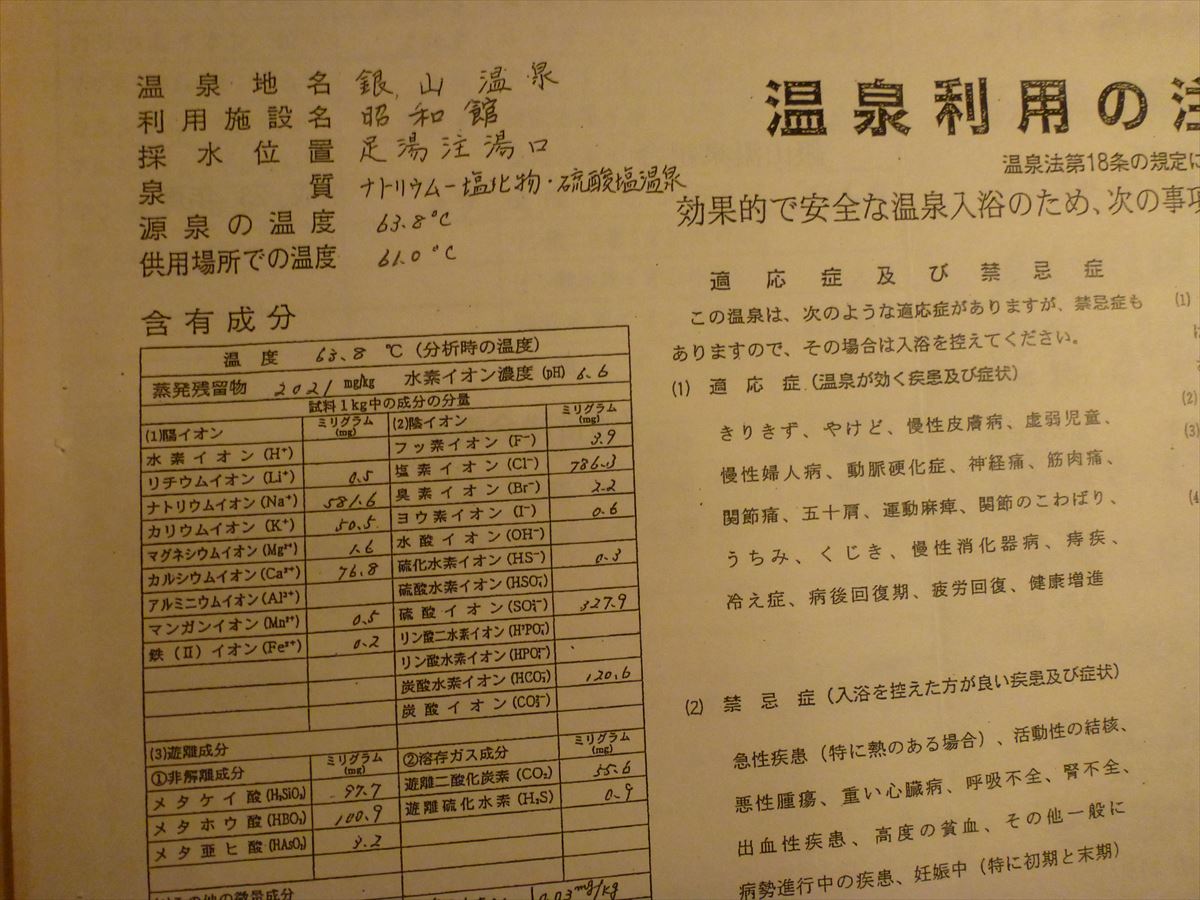 温泉地名 銀山温泉
利用施設名 昭和館
採水位置 足湯注湯口
泉質 ナトリウム－塩化物・硫酸塩温泉
源泉の温度 63.8℃
供用場所での温度 61.0℃
含有成分
温度 63.8 ℃ (分析時の温度)
蒸発残留物 2021 mg/kg 水素イオン濃度(pH) 6.6
試料1kg中の成分の分量
(1)陽イオン ミリグラム(mg) (2)陰イオン ミリグラム(mg)
水素イオン(H⁺) フッ素イオン(F⁻) 3.9
リチウムイオン(Li⁺) 0.5 塩素イオン(Cl⁻) 786.3
ナトリウムイオン(Na⁺) 581.6 臭素イオン(Br⁻) 2.2
カリウムイオン(K⁺) 50.5 ヨウ素イオン(I⁻) 0.6
マグネシウムイオン(Mg²⁺) 1.6 水酸イオン(OH⁻)
カルシウムイオン(Ca²⁺) 76.8 硫化水素イオン(HS⁻) 0.3
アルミニウムイオン(Al³⁺) 硫酸水素イオン(HSO₄⁻)
マンガンイオン(Mn²⁺) 0.5 硫酸イオン(SO₄²⁻) 327.9
鉄(II)イオン(Fe²⁺) 0.2 リン酸二水素イオン(H²PO₄⁻)
リン酸水素イオン(HPO₄²⁻)
炭酸水素イオン(HCO₃⁻) 120.6
炭酸イオン(CO₃²⁻)
(3)遊離成分
①非解離成分 ミリグラム(mg) ②溶存ガス成分 ミリグラム(mg)
メタケイ酸(H₂SiO₃) 97.7 遊離二酸化炭素(CO₂) 55.6
メタホウ酸(HBO₂) 100.9 遊離硫化水素(H₂S) 0.9
メタ亜ヒ酸(HAsO₂) 3.2
の他の微量成分 0.03mg/kg
温泉利用の注
温泉法第18条の規定に
効果的で安全な温泉入浴のため、次の事項
適応症及び禁忌症
この温泉は、次のような適応症がありますが、禁忌症も
ありますので、その場合は入浴を控えてください。
(1) 適応症(温泉が効く疾患及び症状)
きりきず、やけど、慢性皮膚病、虚弱児童、
慢性婦人病、動脈硬化症、神経痛、筋肉痛、
関節痛、五十肩、運動麻痺、関節のこわばり、
うちみ、くじき、慢性消化器病、痔疾、
冷え症、病後回復期、疲労回復、健康増進
(2) 禁忌症(入浴を控えた方が良い疾患及び症状)
急性疾患(特に熱のある場合)、活動性の結核、
悪性腫瘍、重い心臓病、呼吸不全、腎不全、
出血性疾患、高度の貧血、その他一般に
病勢進行中の疾患、妊娠中(特に初期と末期)
(1)
(2)
(3)
(4)